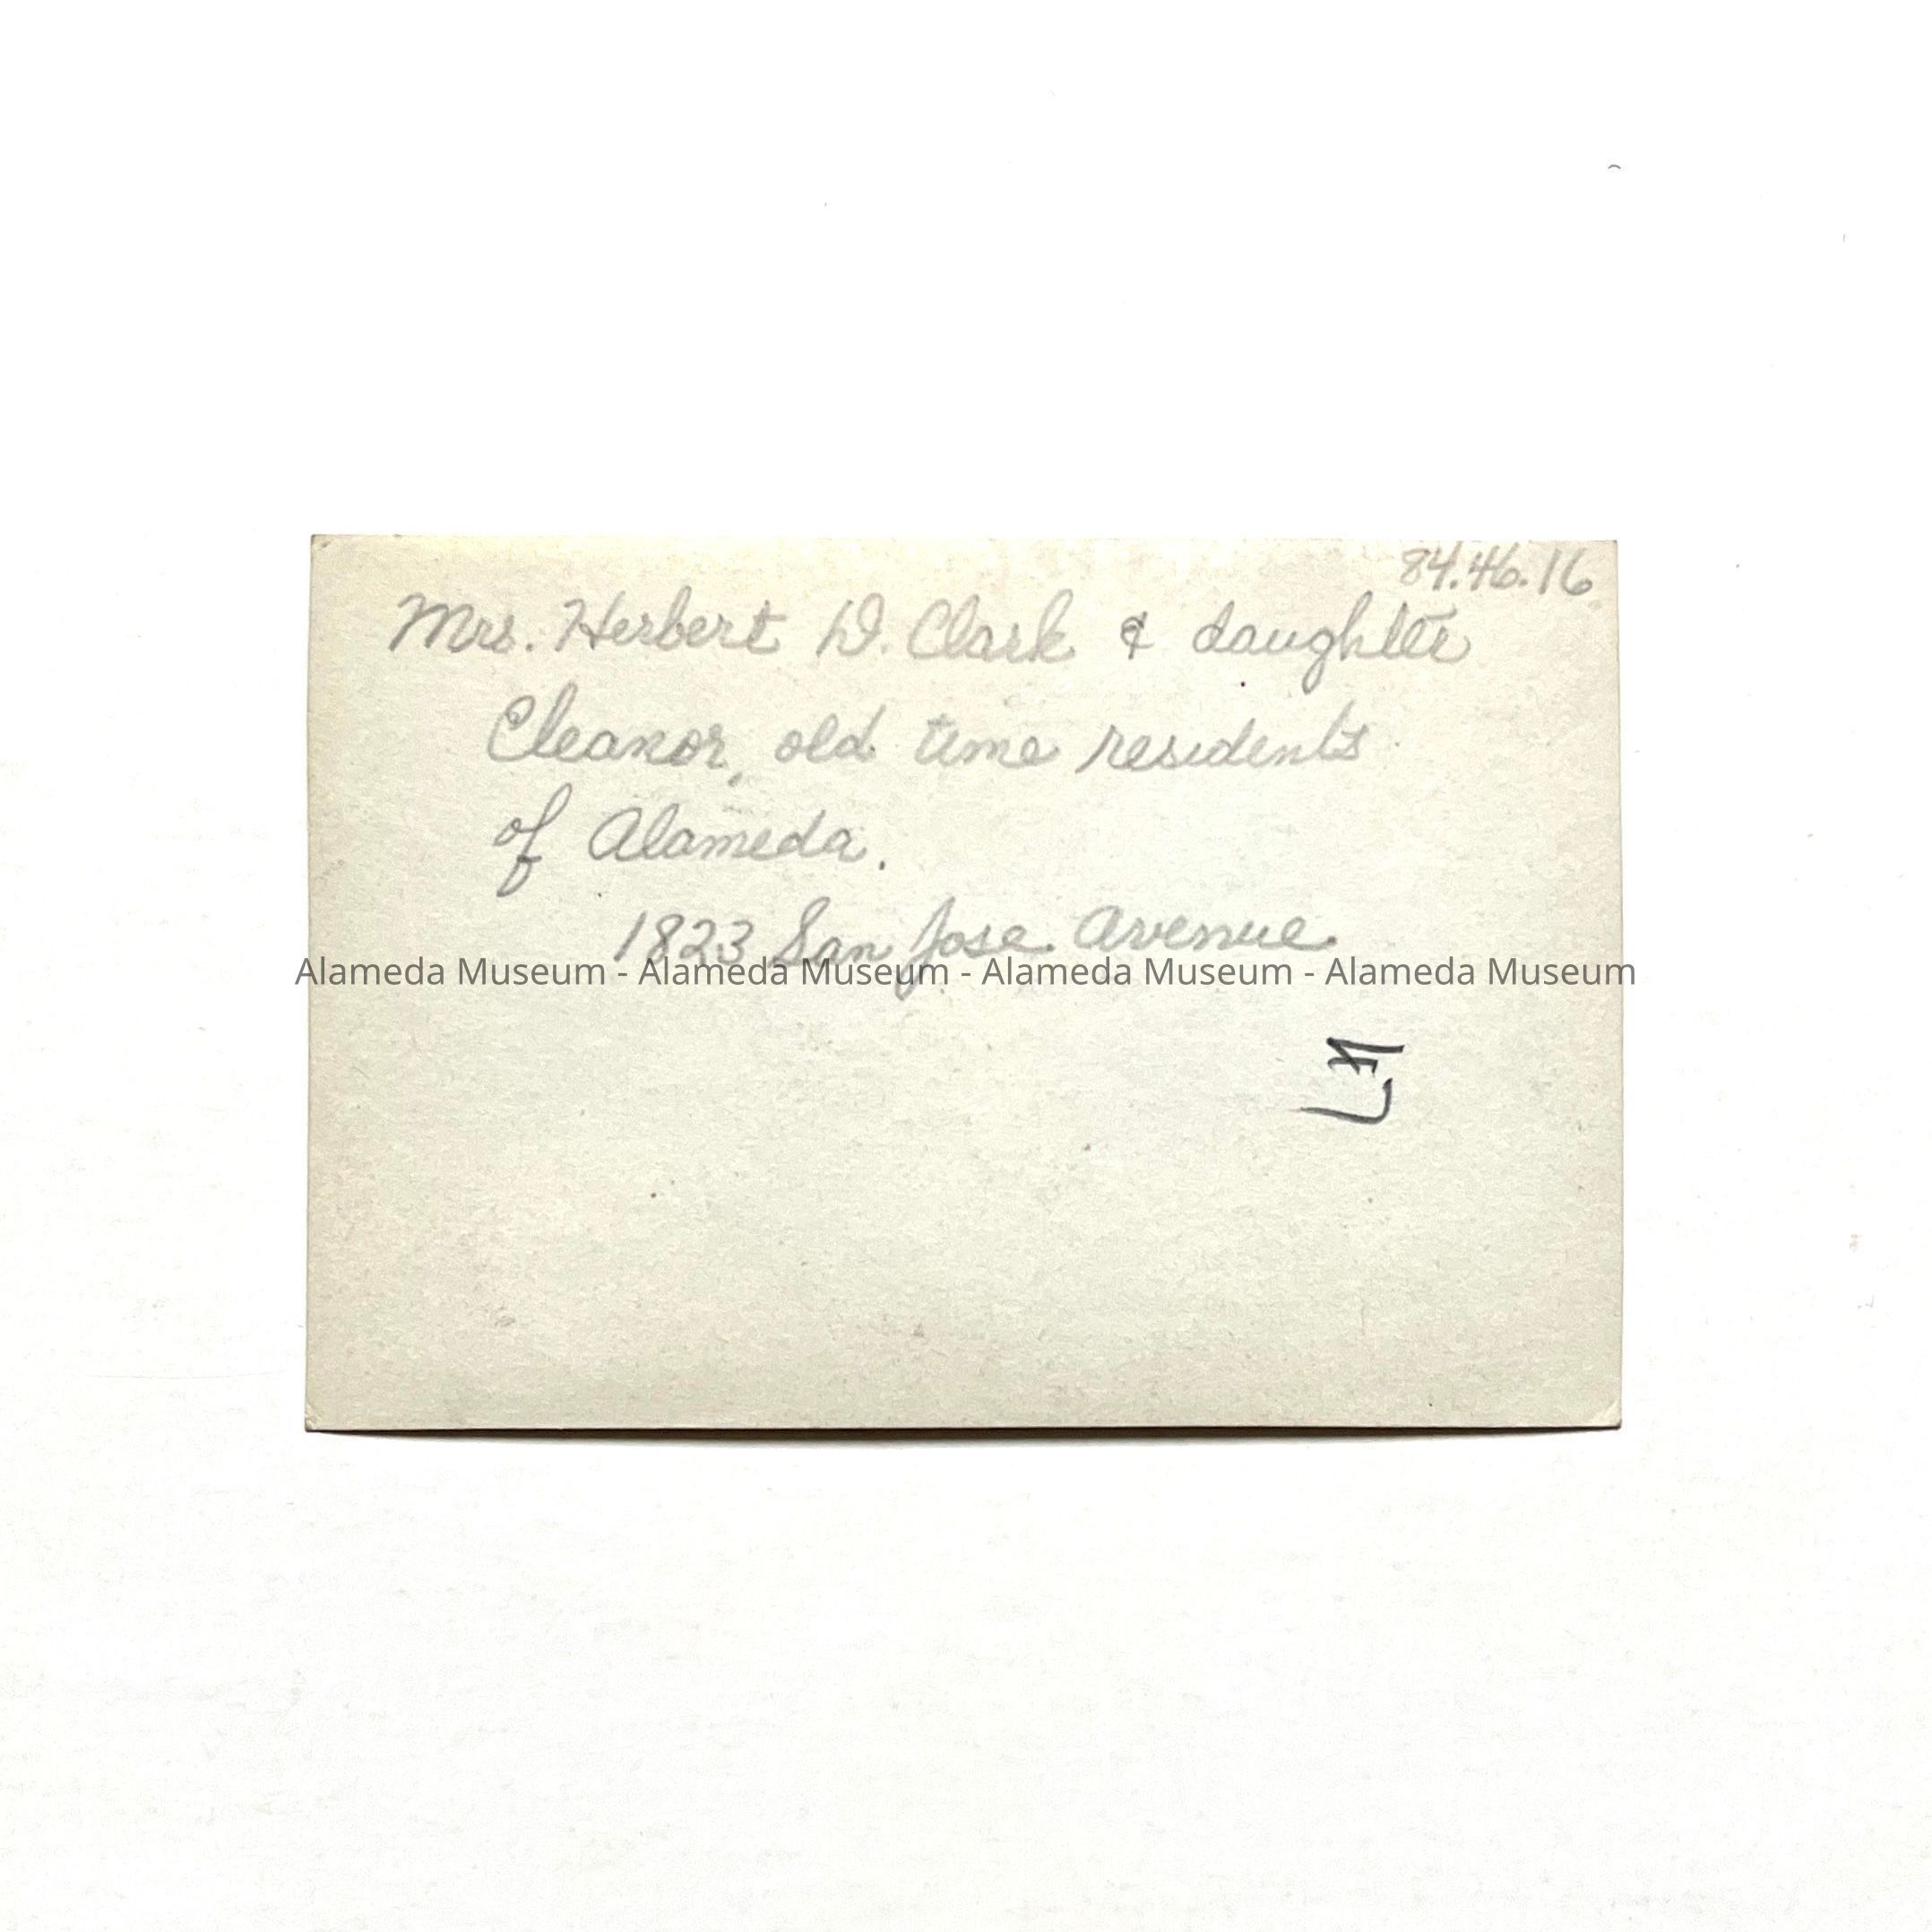 84.46.16
Mrs. Herbert D. Clark & daughter
Eleanor, old time residents
of Alameda.
1823 San Jose Avenue
Alameda Museum - Alameda Museum - Alameda Museum - Alameda Museum